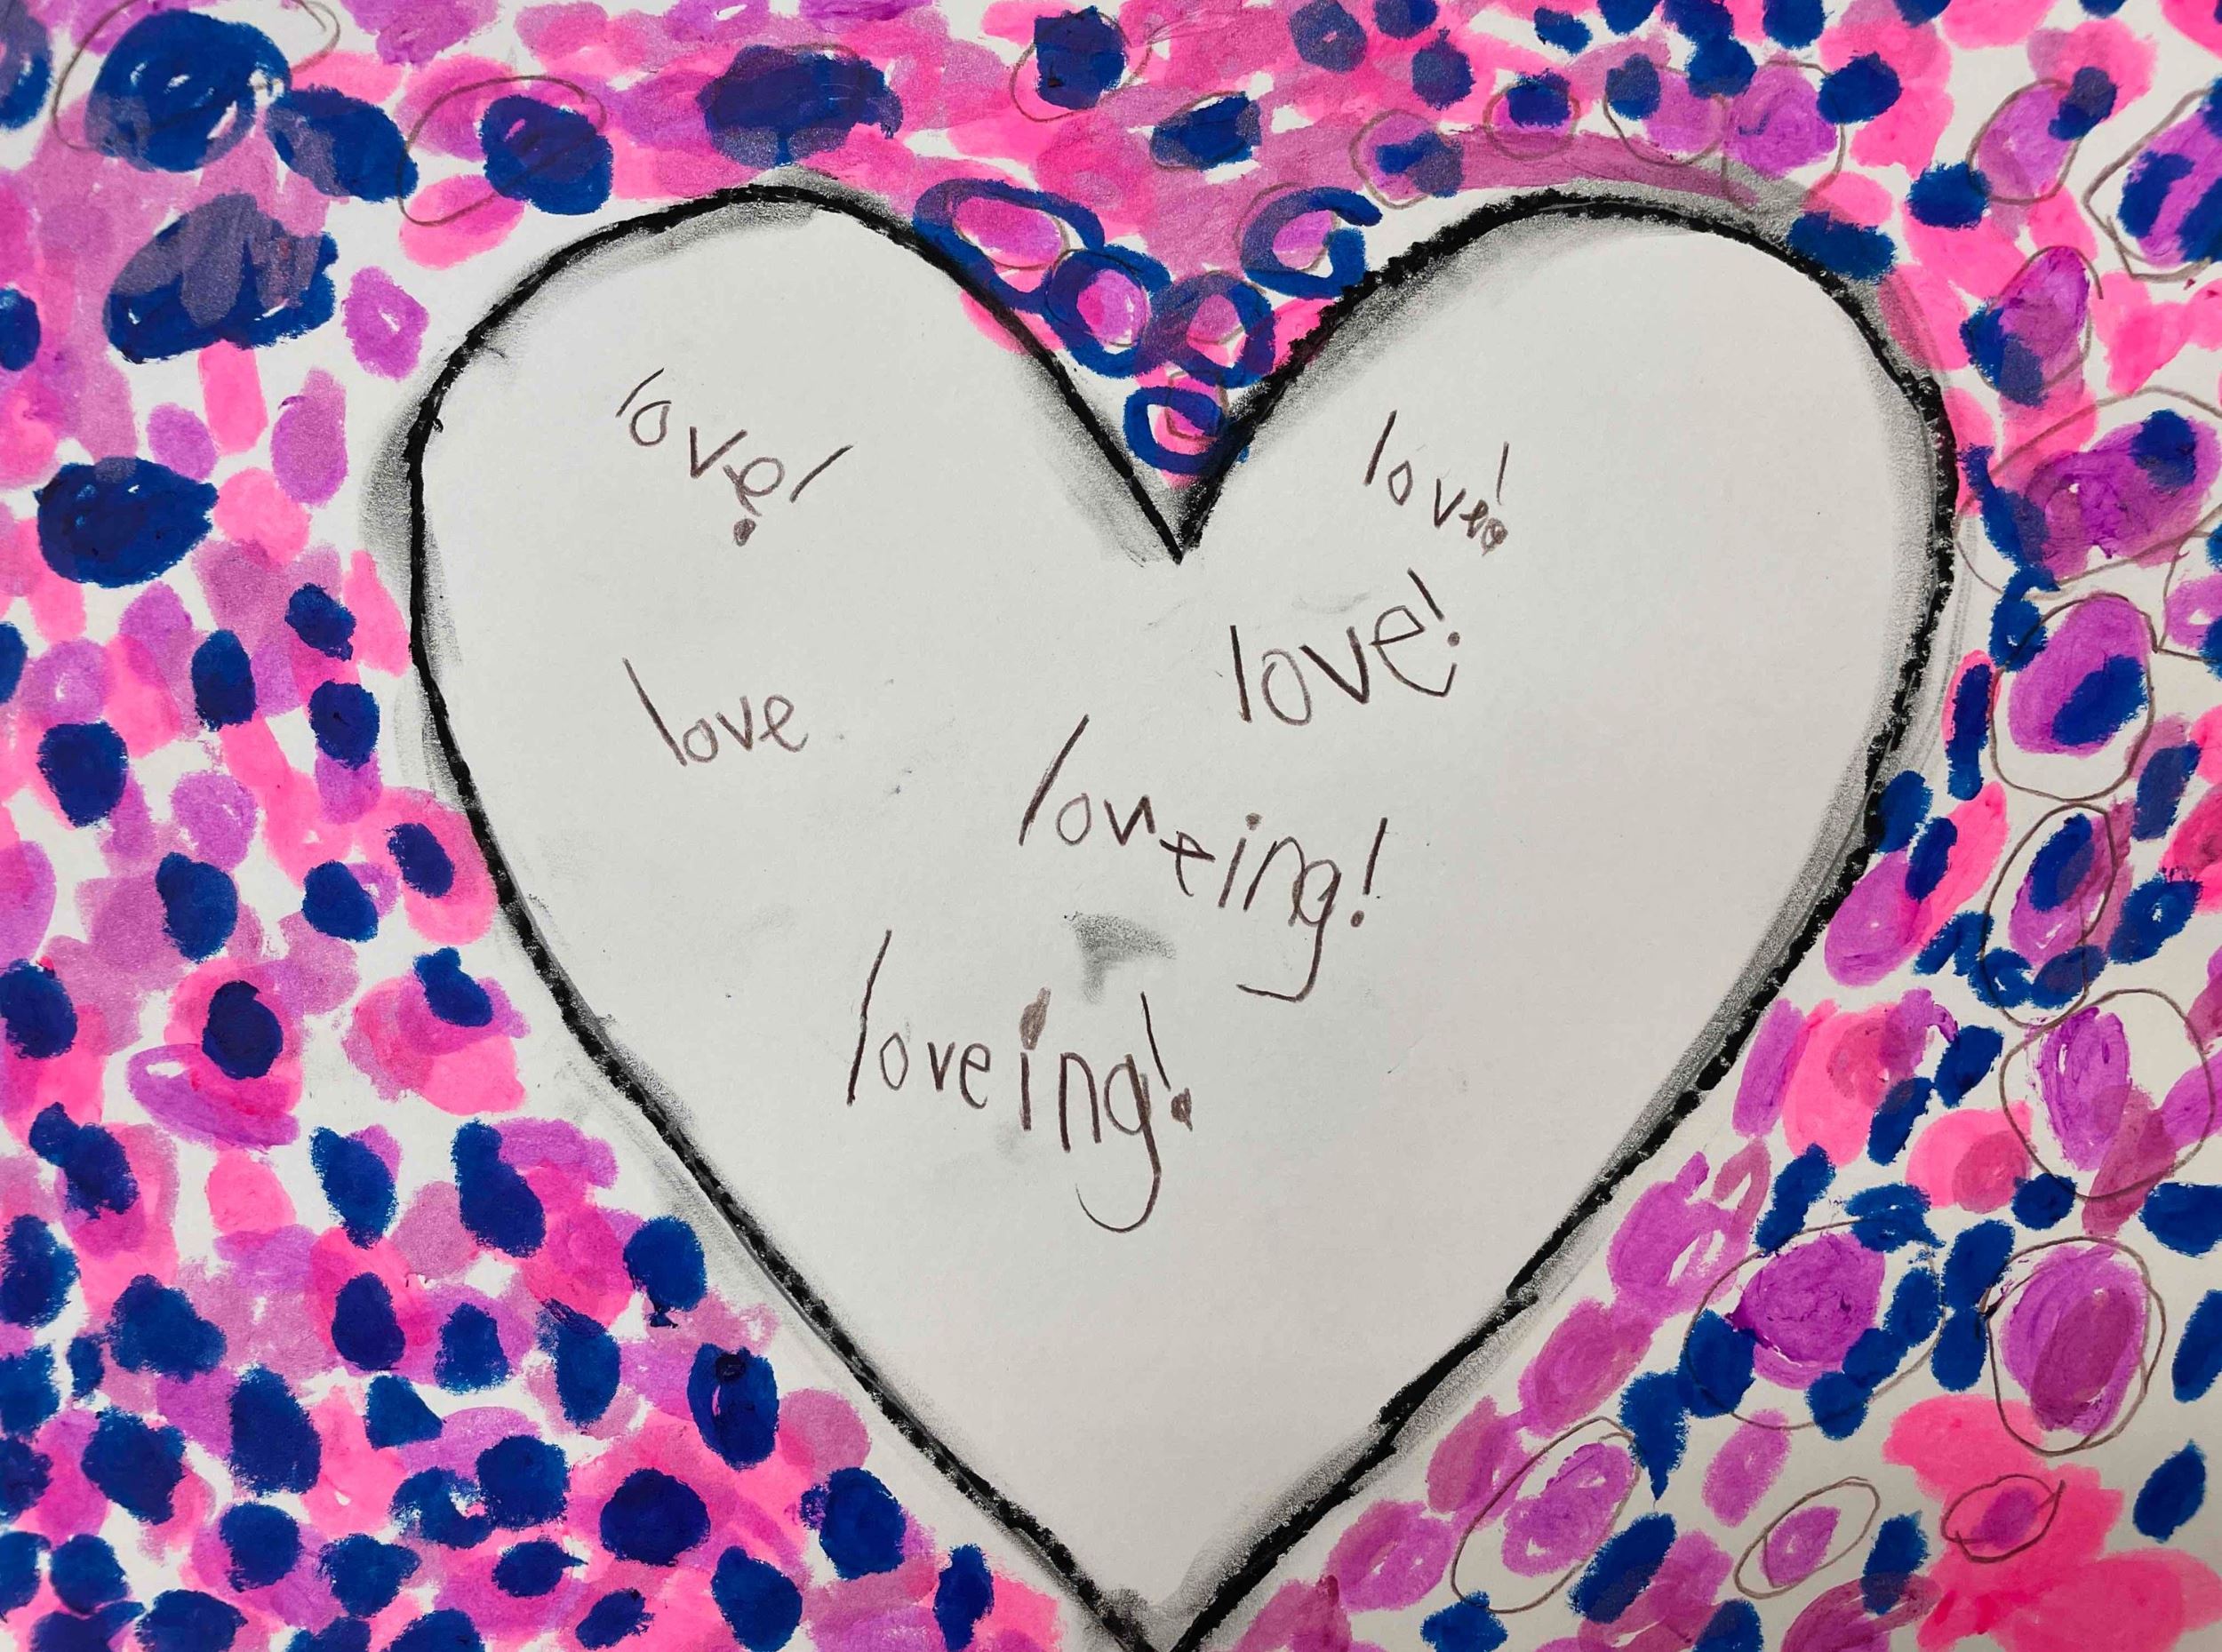 love!
love!
love!
love
loveing!
loveing!